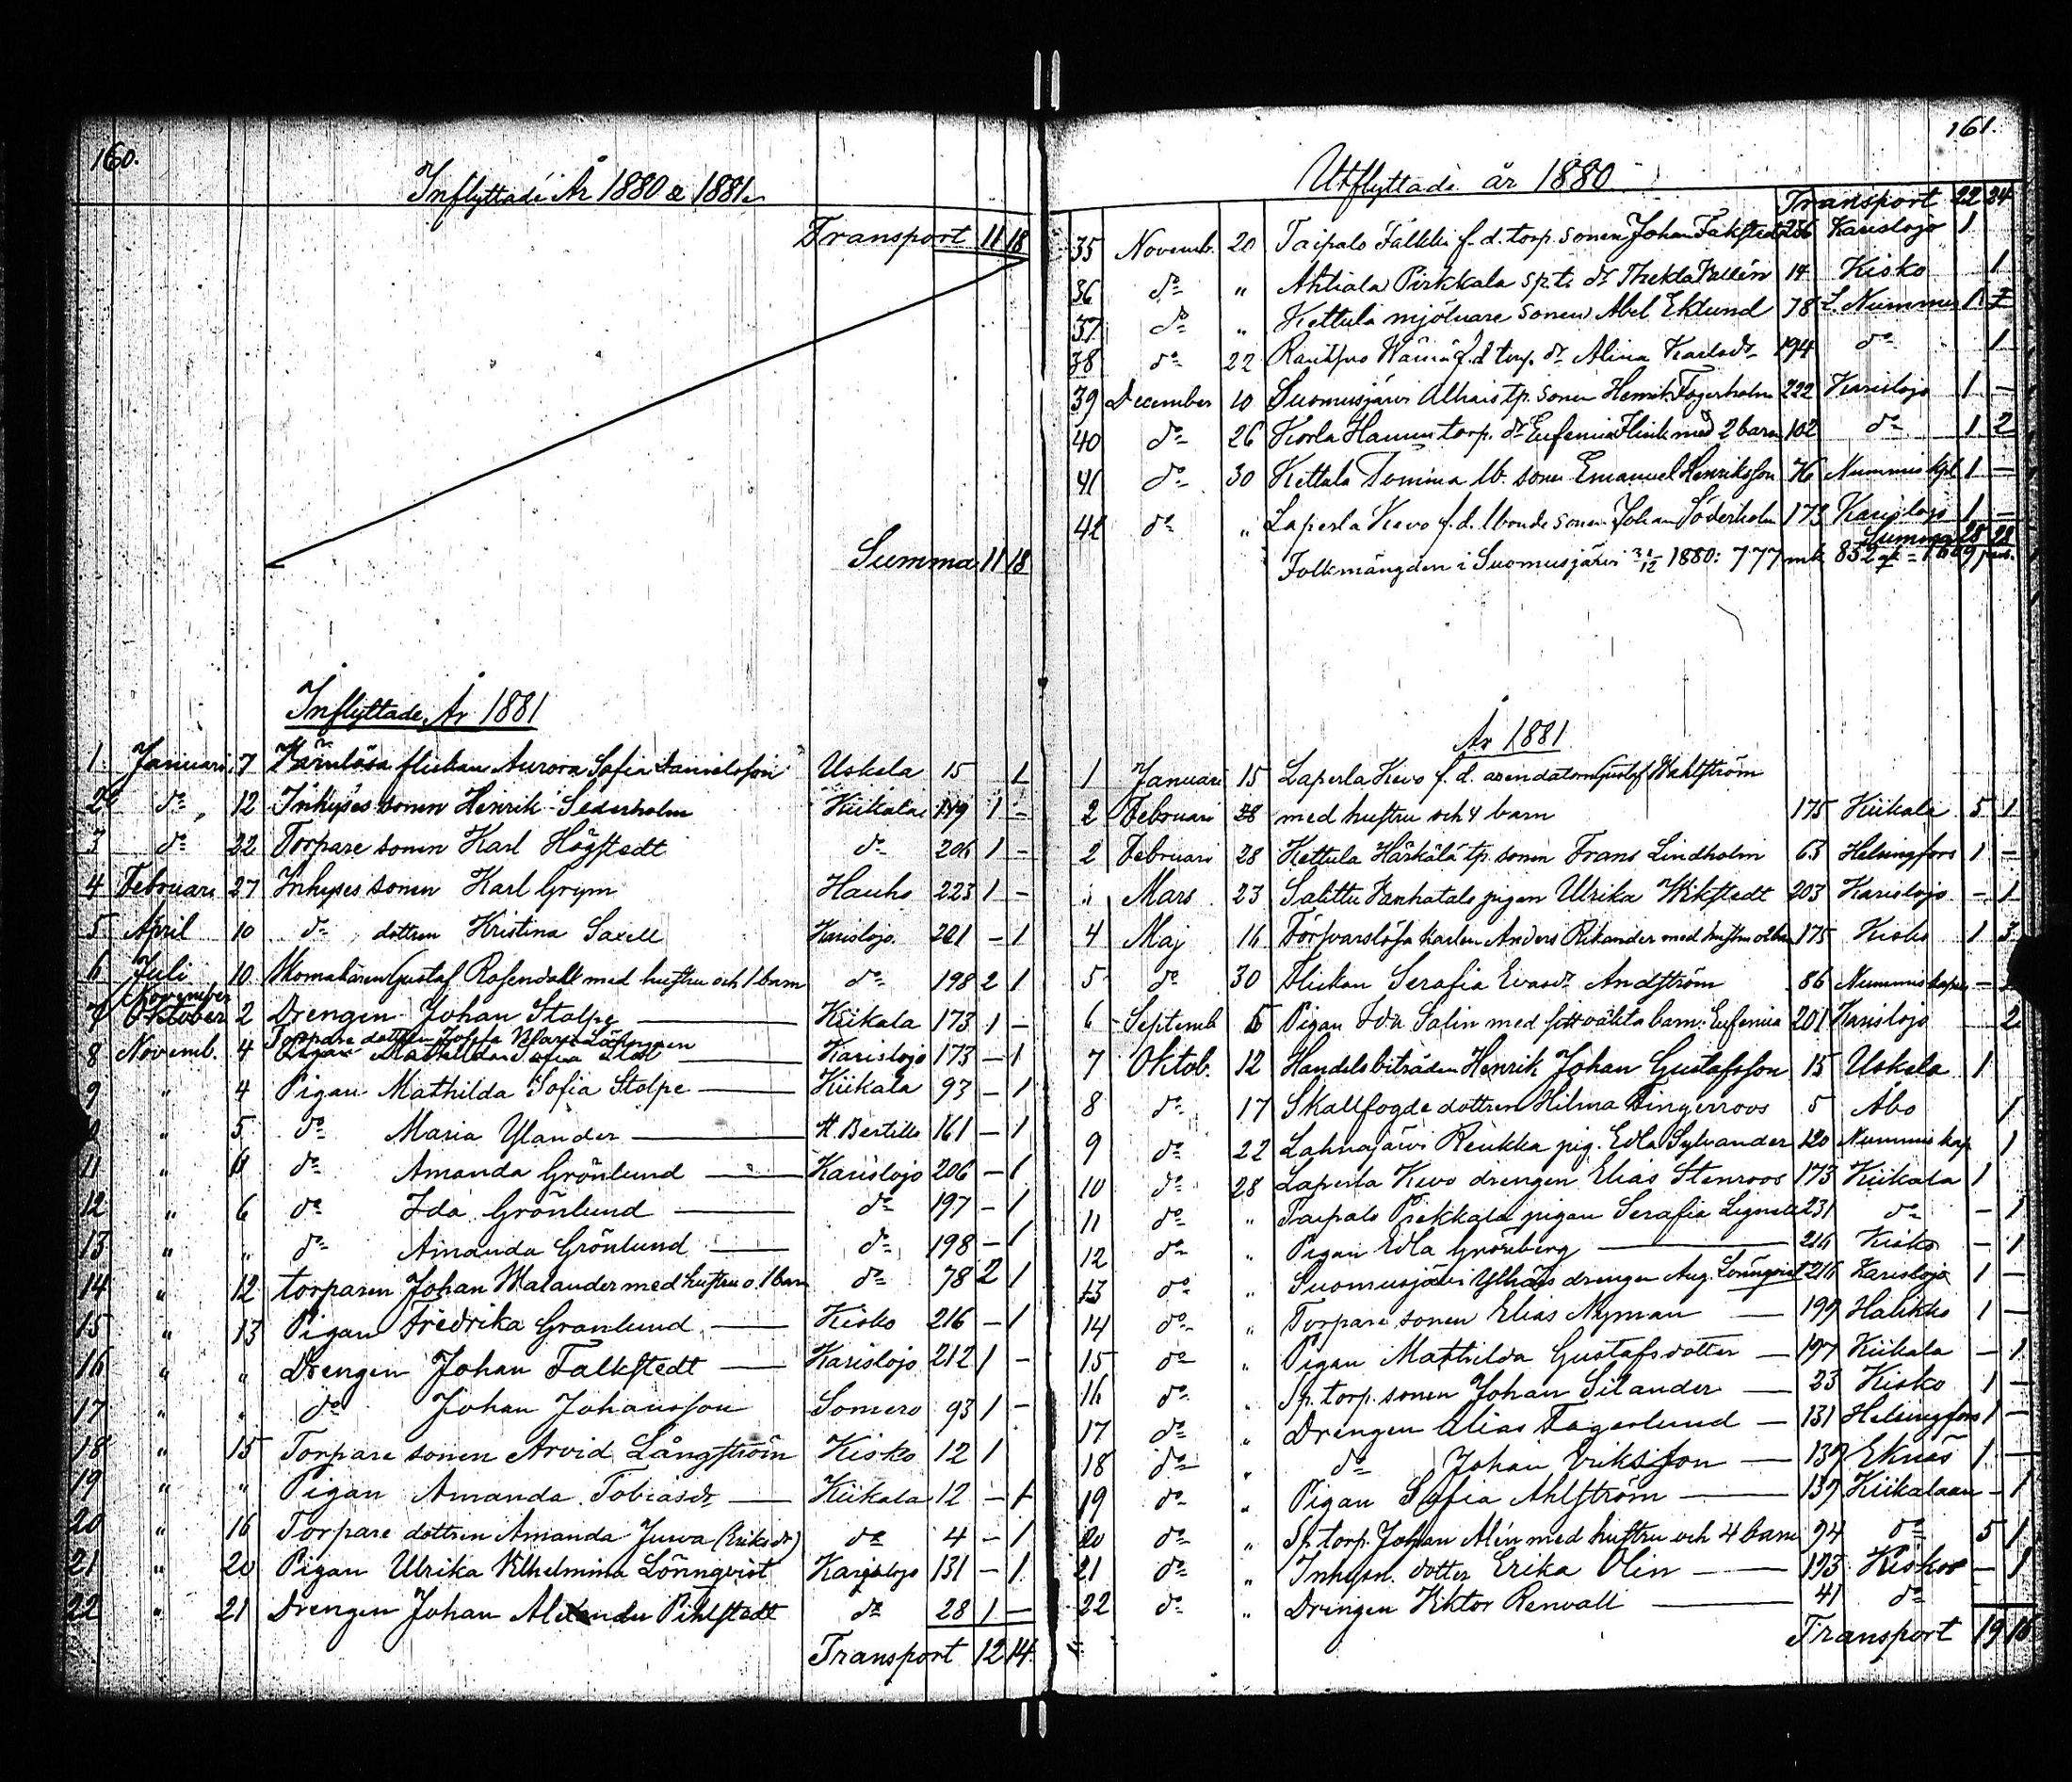 160.
Inflyttade År 1880 & 1881.
Transport 11 18
Summa 11 18
Inflyttade År 1881
1 Januari 7 Wärnlösa flickan Aurora Sofia Danielsson Uskela 15 1
2 do 12 Inhyses sonen Henrik Sederholm Kiikala 179 1 -
3 do 22 Torpare sonen Karl Högstedt do 206 1 -
4 Februari 27 Inhyses sonen Karl Grym Hauho 223 1 -
5 April 10 do dottren Kristina Saxell Karislojo 201 - 1
6 Juli 10 Skomakaren Gustaf Rosendahl med hustru och 1 barn do 198 2 1
November
7 Oktober 2 Drengen Johan Stolpe — Kiikala 173 1 -
Torpare dottren Josefa
8 Novemb. 4 Pigan Mathilda Sofia — Karislojo 173 - 1
9 " 4 Pigan Mathilda Sofia Stolpe — Kiikala 93 - 1
" 5 do Maria Ylander — St. Bertills 161 - 1
11 " 6 do Amanda Grönlund — Karislojo 206 - 1
12 " 6 do Ida Grönlund — do 197 - 1
13 " " do Amanda Grönlund — do 198 - 1
14 " 12 torparen Johan Walander med hustru o. 1 barn do 78 2 1
15 " 13 Pigan Fredrika Granlund — Kisko 216 - 1
16 " " Drengen Johan Falkstedt — Karislojo 212 1 -
17 " " do Johan Johansson Somero 93 1 -
18 " 15 Torpare sonen Arvid Långström Kisko 12 1
19 " " Pigan Amanda Tobiasdr — Kiikala 12 - 1
20 " 16 Torpare dottren Amanda Juva (Eriksdr) do 4 - 1
21 " 20 Pigan Ulrika Wilhelmina Lönnqvist Karislojo 131 - 1
22 " 21 Drengen Johan Alexander Pihlstedt do 28 1 —
Transport 12 14
161.
Utflyttade år 1880
Transport 22 24
35 Novemb. 20 Taipale Falkki f. d. torp. sonen Johan Falkstedt 236 Karislojo 1
36 do " Ahtiala Pirkkala sp.t. dr Thekla Wallén 14 Kisko 1
37 do " Kettula mjölnare sonen Abel Eklund 78 L. Nummis 1
38 do 22 f.d torp. dr Alina Karlsdr 194 do 1
39 December 10 Suomusjärvi Alhais tp. sonen Henrik Fagerholm 222 Karislojo 1 —
40 do 26 Korla Hannu torp. dr Eufemia Flink med 2 barn 102 do 1 2
41 do 30 Kettula Tomma lb. sonen Emanuel Henriksson 76 Nummis kpl 1 —
42 do " Laperla Kevo f.d. lbonde sonen Johan Söderholm 173 Karislojo 1 —
Summa 28 28
Folkmängden i Suomusjärvi 31/12 1880: 777 mk 852 qk = 1629 pers.
År 1881
1 Januari 15 Laperla Kevo f. d. arendatorn Gustaf Wahlström
2 Februari 28 med hustru och 4 barn 175 Kiikala 5 1
2 Februari 28 Kettula Härkälä tp. sonen Frans Lindholm 63 Helsingfors 1 —
" Mars 23 Salittu Wanhatalo pigan Ulrika Wikstedt 203 Karislojo - 1
4 Maj 16 Försvarslösa karlen Anders Rikander med hustru o 2 barn 175 Kisko 1 3
5 do 30 Flickan Serafia Evasdr Andström 86 Nummis kapel -
6 Septemb 5 Pigan Ida Salin med sitt oäkta barn Eufemia 201 Karislojo 2
7 Oktob. 12 Handelsbiträden Henrik Johan Gustafsson 15 Uskela 1
8 do 17 Skallfogde dottren Hilma Dingerroos 5 Åbo 1
9 do 22 Lahnajärvi Reukka pig. Edla Sylvander 120 Nummis kap 1
10 do 28 Laperla Kevo drengen Elias Stenroos 173 Kiikala 1
11 do " Taipale Pirkkala pigan Serafia Lignell 231 do - 1
12 do " Pigan Edla Grönberg — 216 Kisko - 1
13 do " Suomusjärvi Ylhäis drengen Aug. Lönnqvist 216 Karislojo 1 —
14 do " Torpare sonen Elias Nyman — 199 Halikko 1 —
15 do " Pigan Mathilda Gustafsdotter — 197 Kiikala - 1
16 do " Sp. torp. sonen Johan Silander — 23 Kisko 1 —
17 do " Drengen Elias Fagerlund — 131 Helsingfors 1 —
18 do " do Johan Eriksson — 139 Eknäs 1 —
19 do " Pigan Sofia Ahlström — 139 Kiikalaan - 1
20 do " Sp. torp. Johan Alén med hustru och 4 barn 94 do 5 1
21 do " Inhysn. dotter Erika Olin — 193 Kisko - 1
22 do " Drengen Viktor Renvall — 41 do
Transport 19 16